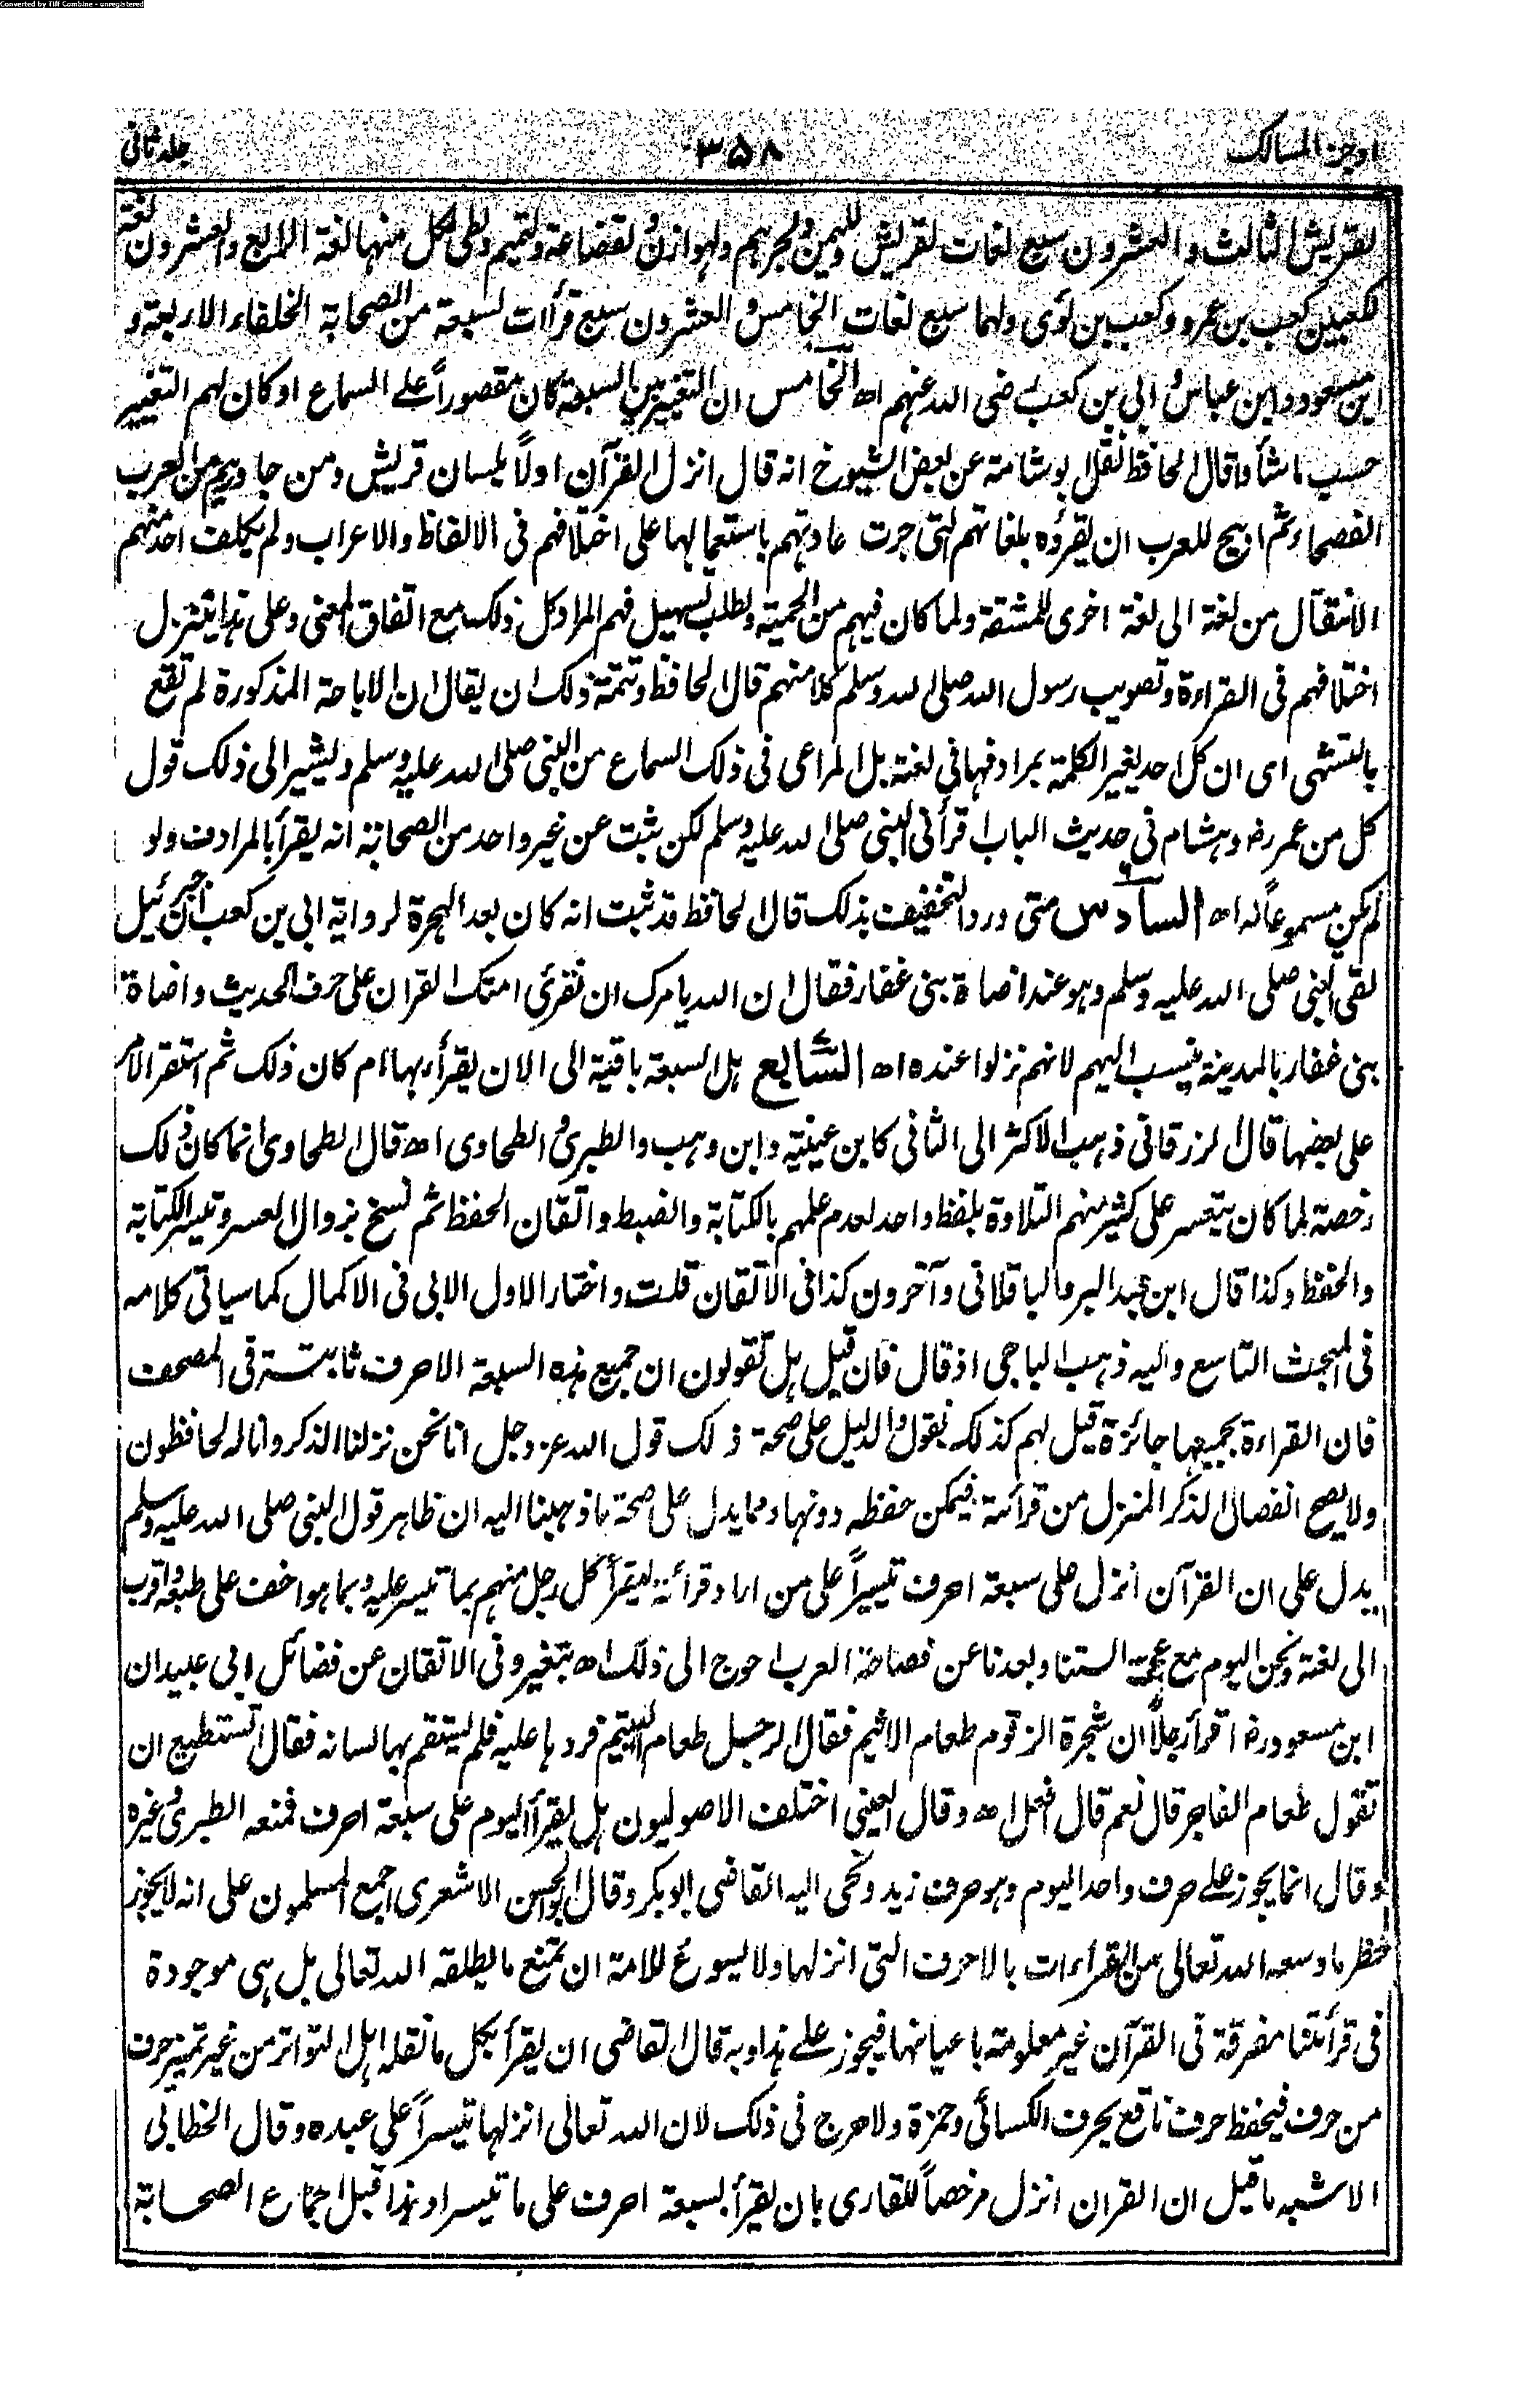 Converted by Tiff Combine - unregistered
اوجز المسالك ٣٥٨ جلد ثانی
لقریش الثالث والعشرون سبع لغات لقریش ولليمن ولجرهم ولهوازن ولقضاعة ولتميم ولطی لكل منها لغة الرابع والعشرون لغة
لكعبين كعب بن عمرو وكعب بن لؤی ولهما سبع لغات الخامس والعشرون سبع قرأات لسبعة من الصحابة الخلفاء الاربعة و
ابن مسعود وابن عباس وابی بن كعب رضی الله عنهم اھ الخامس ان التغيير بين السبعة كان مقصوراً علے السماع او كان لهم التغيير
حسب ما شأوا قال الحافظ نقل ابو شامة عن بعض الشيوخ انه قال انزل القرآن اولاً بلسان قريش ومن جاورهم من العرب
الفصحاء ثم ابيح للعرب ان يقرؤه بلغاتهم التی جرت عادتهم باستعمالها على اختلافهم فی الالفاظ والاعراب ولم يكلف احد منهم
الانتقال من لغة الى لغة اخرى للمشقة ولما كان فيهم من الحمية ولطلب تسهيل فهم المراد كل ذلك مع اتفاق المعنى وعلى هذا يتنزل
اختلافهم فی القراءة وتصويب رسول الله صلى الله وسلم كلا منهم قال الحافظ وتتمة ذلك ان يقال ان الاباحة المذكورة لم تقع
بالتشهی ای ان كل احد يغير الكلمة بمرادفها فی لغته بل المراعى فی ذلك السماع من النبی صلى الله عليه وسلم ويشير الى ذلك قول
كل من عمر رض وهشام فی حديث الباب اقرأنی النبی صلى الله عليه وسلم لكن ثبت عن غير واحد من الصحابة انه يقرأ بالمرادف ولو
لم يكن مسموعاً له اھ السادس متى ورد التخفيف بذلك قال الحافظ قد ثبت انه كان بعد الهجرة لرواية ابی بن كعب ان جبرئيل
لقی النبی صلى الله عليه وسلم وهو عند اضاة بنی غفار فقال ان الله يأمرك ان تقرئ امتك القران على حرف الحديث واضاة
بنی غفار بالمدينة ينسب اليهم لانهم نزلوا عنده اھ السابع هل السبعة باقية الى الان يقرأ بها ام كان ذلك ثم استقر الامر
على بعضها قال الزرقانی ذهب الاكثر الى الثانی كابن عيينة وابن وهب والطبری والطحاوی اھ قال الطحاوی انما كان ذلك
رخصة لما كان يتعسر على كثير منهم التلاوة بلفظ واحد لعدم علمهم بالكتابة والضبط واتقان الحفظ ثم نسخ بزوال العسر وتيسر الكتابة
والحفظ وكذا قال ابن عبد البر والباقلانی وآخرون كذا فی الاتقان قلت واختار الاول الابی فی الاكمال كما سياتی كلامه
فی المبحث التاسع واليه ذهب الباجی اذ قال فان قيل هل تقولون ان جميع هذه السبعة الاحرف ثابتة فی المصحف
فان القراءة بجميعها جائزة قيل لهم كذلك نقول والدليل على صحة ذلك قول الله عز وجل انا نحن نزلنا الذكر وانا له لحافظون
ولا يصح انفصال الذكر المنزل من قرأته فيمكن حفظه دونها ومما يدل على صحة ما ذهبنا اليه ان ظاهر قول النبی صلى الله عليه وسلم
يدل على ان القرآن انزل على سبعة احرف تيسيراً على من اراد قرأته ليقرأ كل رجل منهم بما تيسر عليه وبما هو اخف على طبعه واقرب
الى لغته ونحن اليوم مع عجمة السنتنا وبعدنا عن فصاحة العرب احوج الى ذلك اھ بتغير وفی الاتقان عن فضائل ابی عبيد ان
ابن مسعود رض اقرأ رجلاً ان شجرة الزقوم طعام الاثيم فقال الرجل طعام اليتيم فردها عليه فلم يستقم بها لسانه فقال اتستطيع ان
تقول طعام الفاجر قال نعم قال فافعل اھ وقال العينی اختلف الاصوليون هل يقرأ اليوم على سبعة احرف فمنعه الطبری وغيره
وقال انما يجوز علے حرف واحد اليوم وهو حرف زيد ونحى اليه القاضی ابو بكر وقال ابو الحسن الاشعری اجمع المسلمون على انه لا يجوز
حظر ما وسعه الله تعالى من القراءات بالاحرف التی انزلها ولا يسوغ للامة ان تمنع ما يطلقه الله تعالى بل هی موجودة
فی قرأتنا مفرقة فی القرآن غير معلومة باعيانها فيجوز علے هذا وبه قال القاضی ان يقرأ بكل ما نقله اهل التواتر من غير تمييز حرف
من حرف فيحفظ حرف نافع بحرف الكسائی وحمزة ولا حرج فی ذلك لان الله تعالى انزلها تيسيراً على عبده وقال الخطابی
الاشبه ما قيل ان القران انزل مرخصاً للقاری بان يقرأ بسبعة احرف على ما تيسر او هذا قبل اجماع الصحابة